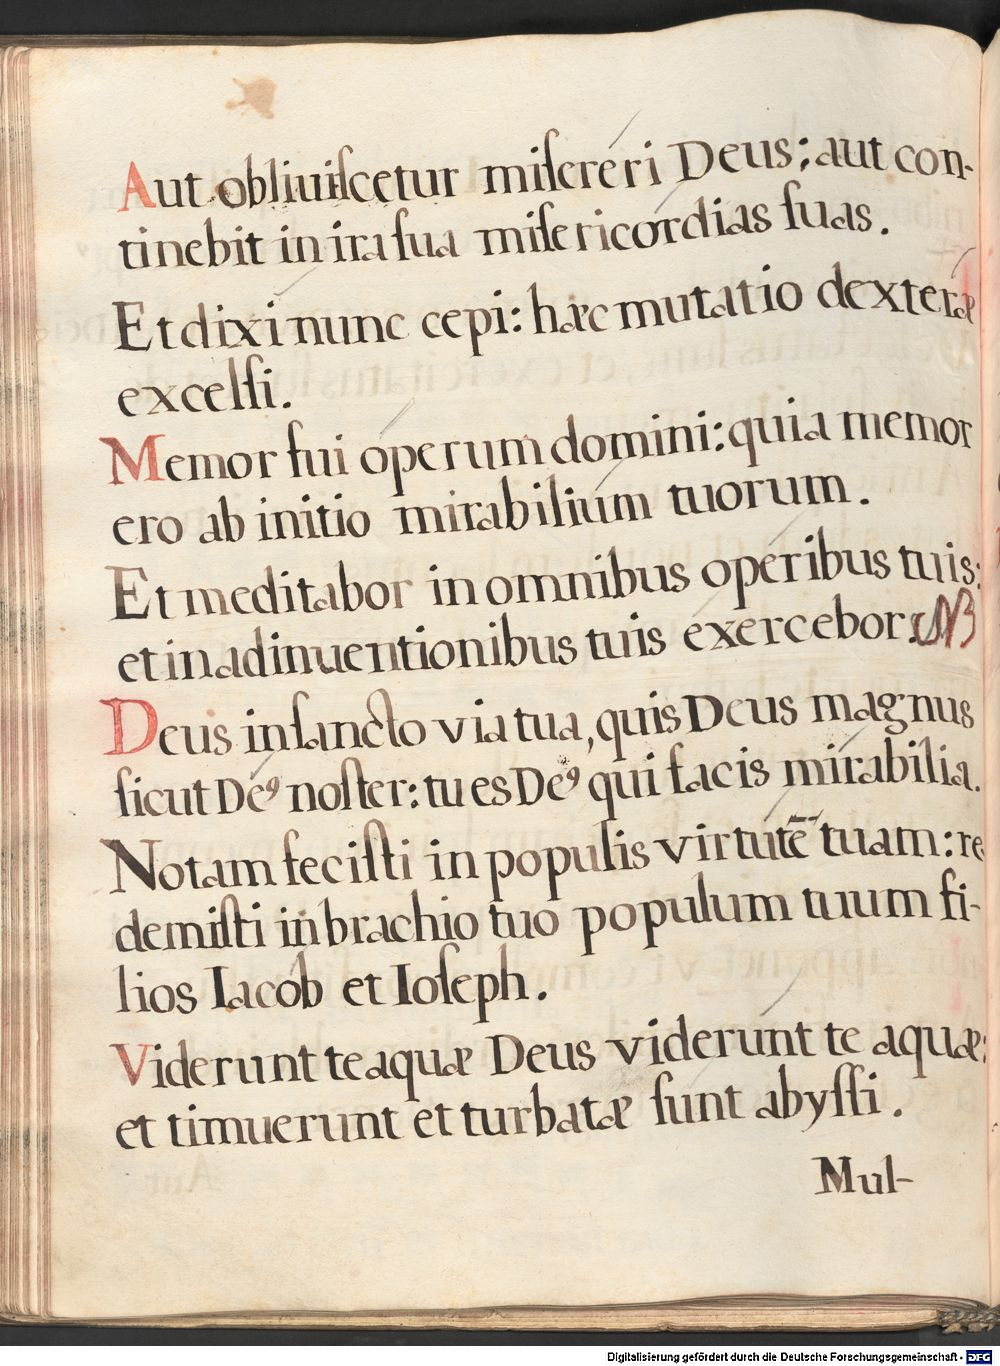 Aut obliuiſcetur miſereri Deus; aut con-
tinebit in ira ſua miſericordias ſuas.
Et dixi nunc cepi: hæc mutatio dexteræ
excelſi.
Memor fui operum domini: quia memor
ero ab initio mirabilium tuorum.
Et meditabor in omnibus operibus tuis:
et in adinuentionibus tuis exercebor. NB
Deus in ſancto via tua, quis Deus magnus
ſicut Deꝰ noſter: tu es Deꝰ qui facis mirabilia.
Notam feciſti in populis virtutē tuam: re
demiſti in brachio tuo populum tuum fi-
lios Iacob et Ioſeph.
Viderunt te aquæ Deus viderunt te aquæ:
et timuerunt et turbatæ ſunt abyſſi.
Mul-
Digitalisierung gefördert durch die Deutsche Forschungsgemeinschaft - DFG